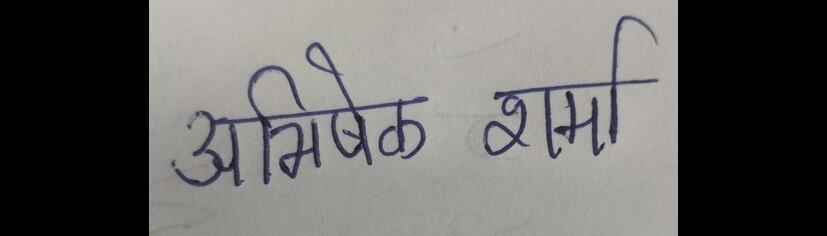 अभिषेक शर्मा